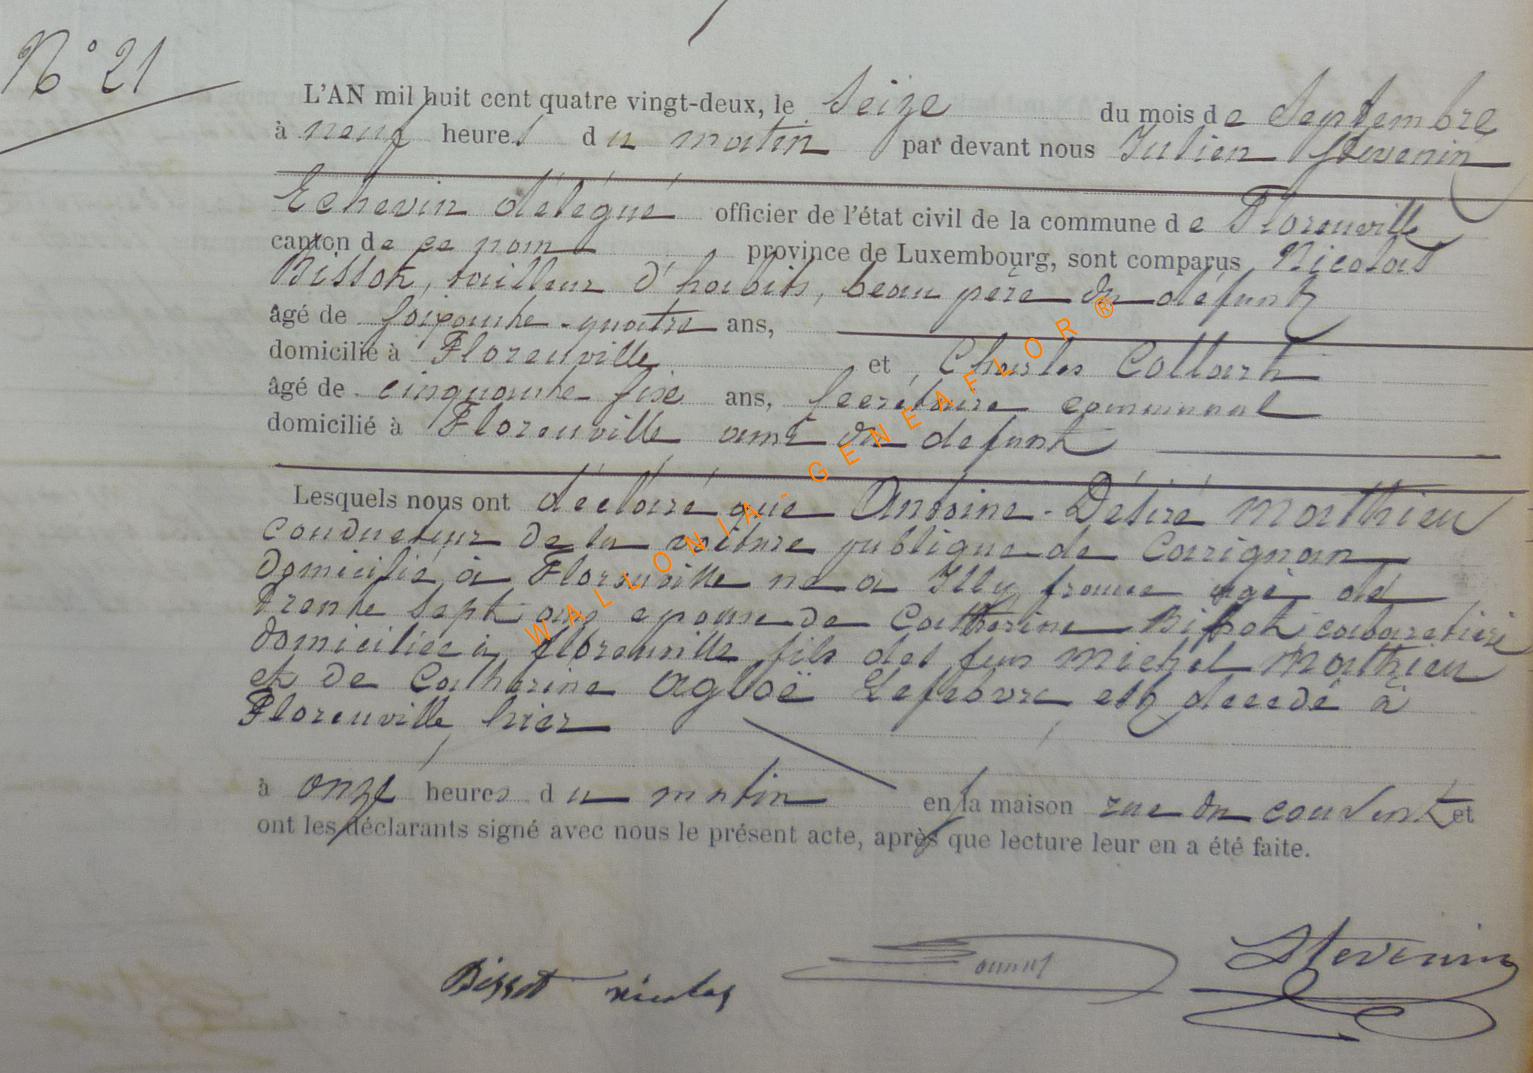 N° 21
L'AN mil huit cent quatre vingt-deux, le Seize du mois de Septembre
à neuf heures du matin par devant nous Julien Stevenin
Echevin délégué officier de l'état civil de la commune de Florenville
canton de ce nom province de Luxembourg, sont comparus Nicolas
Bissot, tailleur d'habits, beau père du défunt
âgé de soixante-quatre ans,
domicilié à Florenville et Charles Collart
âgé de cinquante six ans, secrétaire communal
domicilié à Florenville ami du défunt
Lesquels nous ont déclaré que Antoine-Désiré Mathieu
conducteur de la voiture publique de Carignan
domicilié à Florenville né à Illy france agé de
trente sept ans epoux de Catherine Bissot cabaretière
domiciliée à Florenville fils des feus Michel Mathieu
et de Catherine Agloë Lefebvre est decedé à
Florenville hier
à onze heures du matin en la maison rue du couvent et
ont les déclarants signé avec nous le présent acte, après que lecture leur en a été faite.
Bissot nicolas Stevenin
WALLONIA-GENEAFLOR®